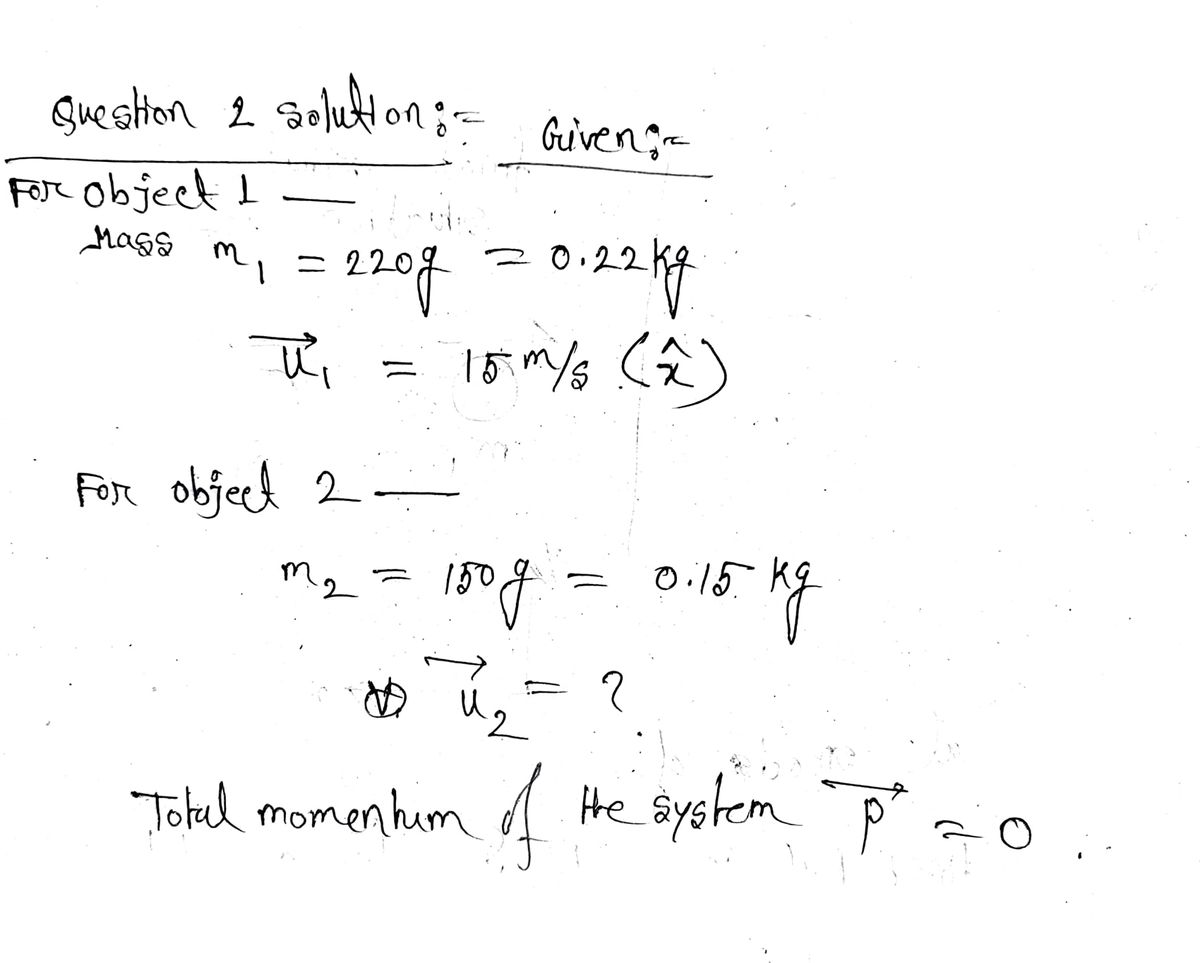 Question 2 Solution :- Given :-
For Object 1 —
Mass m₁ = 220g = 0.22 kg
u⃗₁ = 15 m/s (x̂)
For object 2 —
m₂ = 150g = 0.15 kg
u⃗₂ = ?
Total momentum of the system p⃗ = 0.